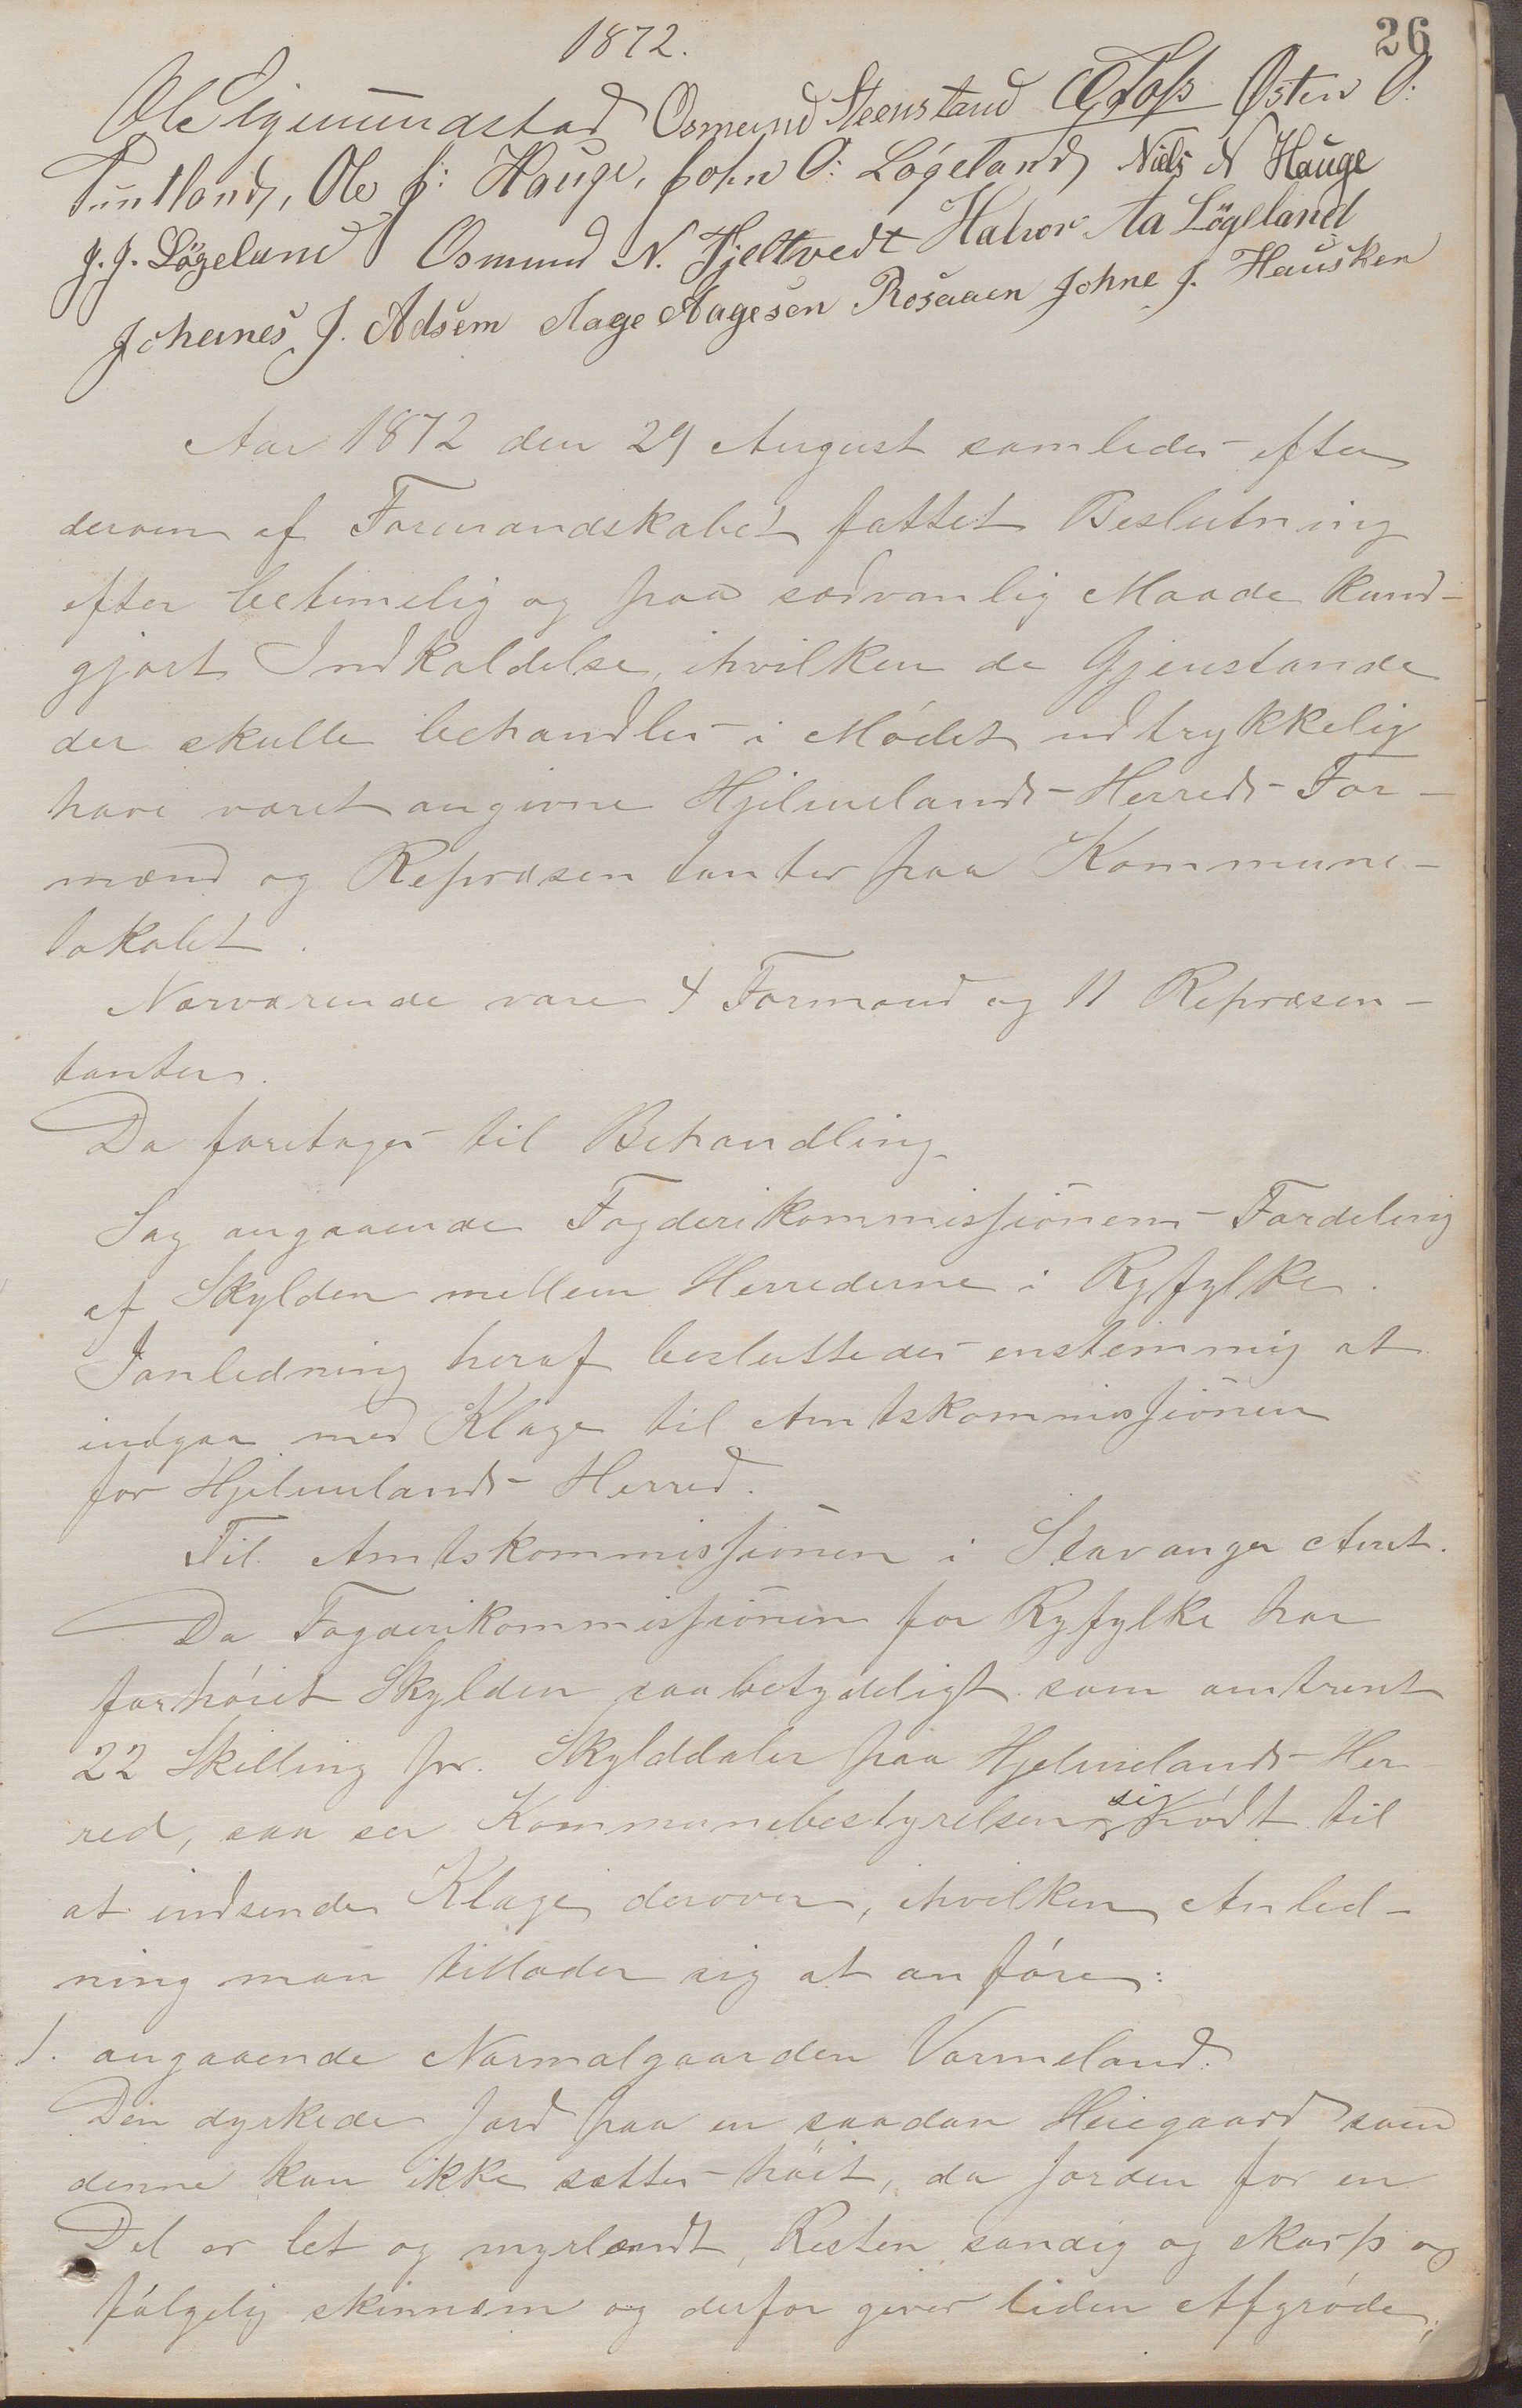 1872.
26
Ole Sigmundstad Osmund Steenstand Østen O:
Tuntland, Ole J: Hauge, John O: Løgeland Niels N Hauge
J. J. Løgeland Osmund N. Hjeltvedt Halvor Aa Løgeland
Johanes J. Adsem Aage Aagesen Rosaaen Johne J. Hausken
Aar 1872 den 29 August samledes efter
derom af Formandskabet fattet Beslutning
efter betimelig og paa sædvanlig Maade kund-
gjort Indkaldelse, ihvilken de Gjenstande
der skulle behandles i Mødet udtrykkelig
have været angivne Hjelmelands Herreds For-
mænd og Repræsentanter paa Kommune-
lokalet.
Nærværende vare 4 Formænd og 11 Repræsen-
tanter.
Da foretages til Behandling.
Sag angaaende Fogderikommissionens Fordeling
af Skylden mellem Herrederne i Ryfylke.
Ianledning heraf besluttedes enstemmig at
indgaa med Klage til Amtskommissionen
for Hjelmelands Herred.
Til Amtskommissionen i Stavanger Amt.
Da Fogderikommissionen for Ryfylke har
forhøiet Skylden saa betydeligt som omtrent
22 Skilling pr. Skylddaler paa Hjelmelands Her-
red, saa ser Kommunebestyrelsen sig nødt til
at indsende Klage derover, ihvilken Anled-
ning man tillader sig at anføre:
1. angaaende Normalgaarden Vormeland.
Den dyrkede Jord paa en saadan Heiegaard som
denne kan ikke sættes høit, da Jorden for en
Del er let og myrlændt, Resten sandig og skarp og
følgelig skinnæm og derfor giver liden Afgrøde,